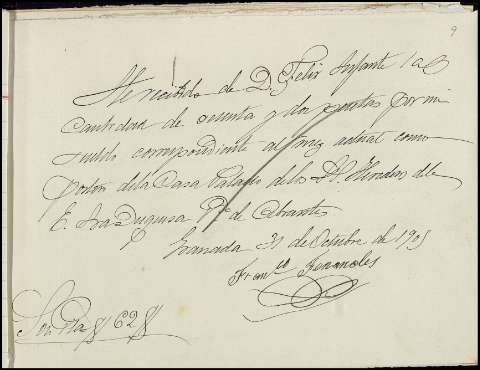 9
He recibido de D. Felix Infante la
cantidad de sesenta y dos pesetas por mi
sueldo correspondiente al mes actual como
portero de la Casa Palacio de los Herederos de la
E. Sra Duquesa Vda de Abrantes
Granada 31 de Octubre de 1905
Franco Fernandes
Son Ptas 62